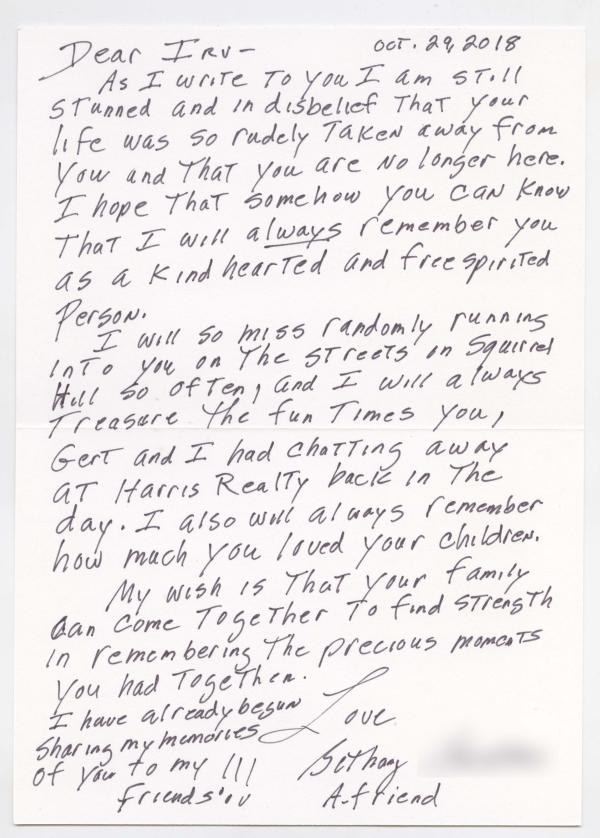 Dear Irv-
Oct. 29, 2018
As I write to you I am still
stunned and in disbelief that your
life was so rudely taken away from
you and that you are no longer here.
I hope that somehow you can know
that I will always remember you
as a kind hearted and free spirited
person.
I will so miss randomly running
into you on the streets on Squirrel
Hill so often, and I will always
treasure the fun times you,
Gert and I had chatting away
at Harris Realty back in the
day. I also will always remember
how much you loved your children.
My wish is that your family
can come together to find strength
in remembering the precious moments
you had together.
I have already begun
sharing my memories
of you to my
friends
Love
Bethany
A friend